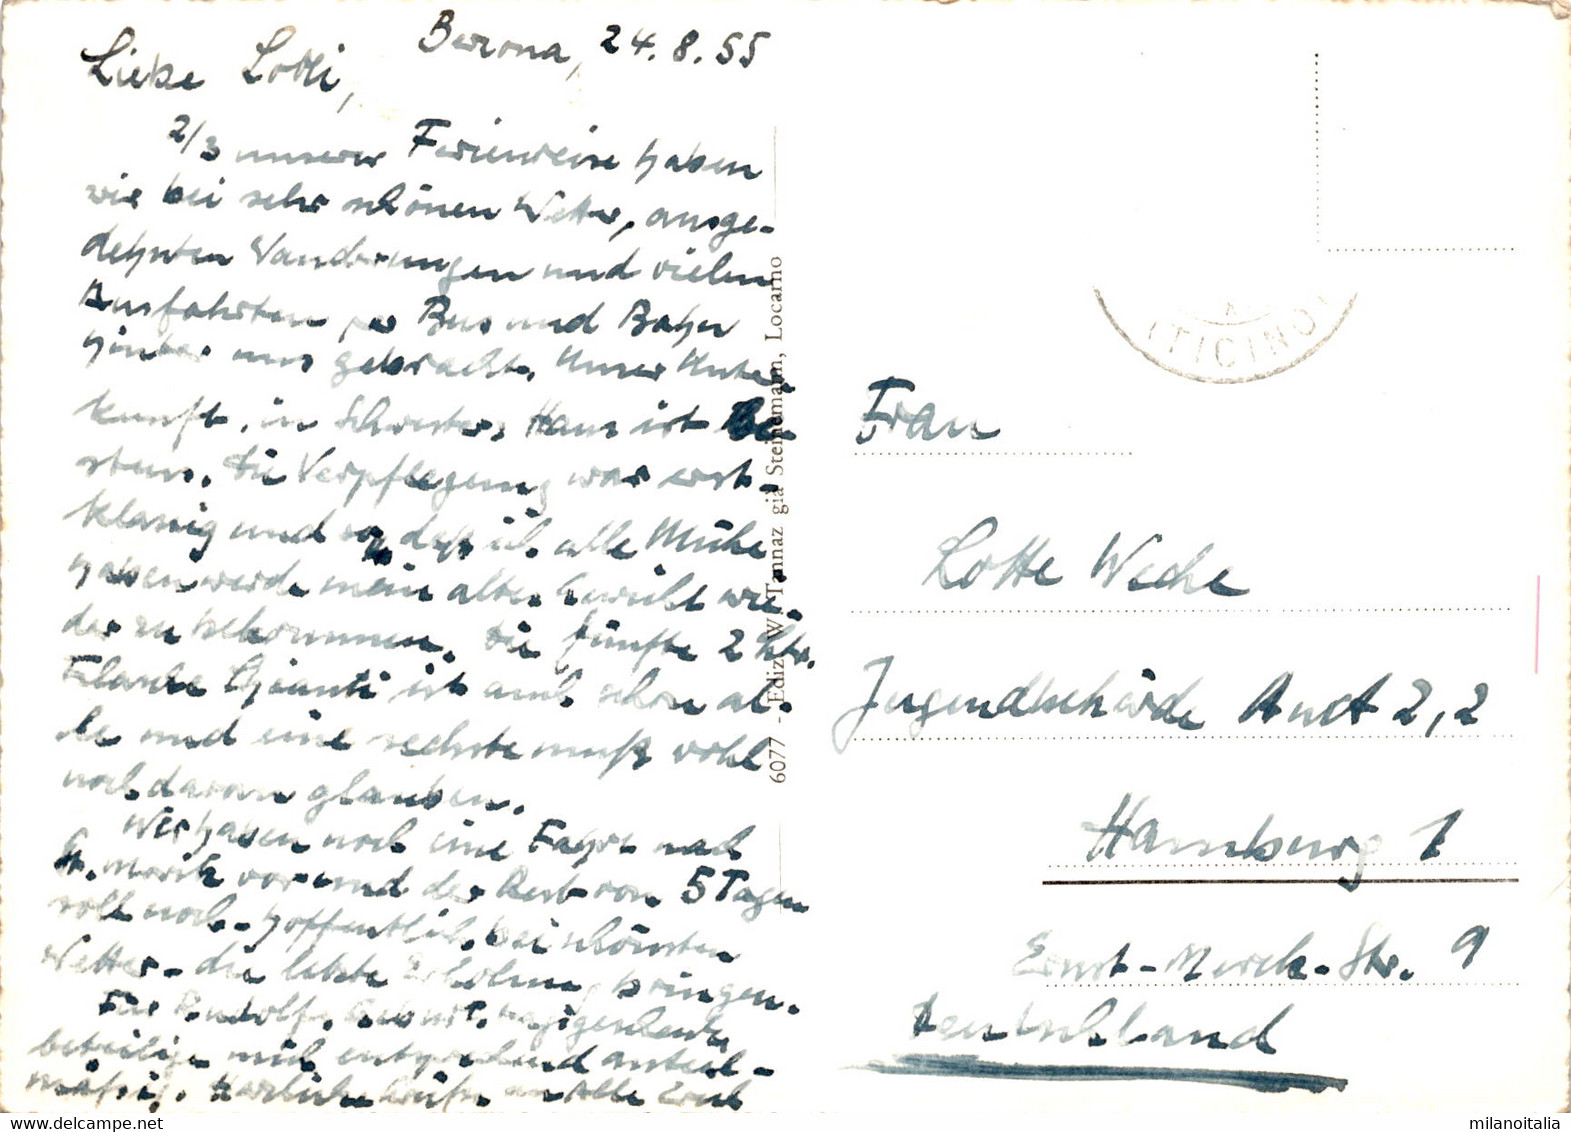 Berzona, 24.8.55
Liebe Lotti,
2/3 unserer Ferienreise haben
wir bei sehr schönen Wetter, ausge-
dehnten Wanderungen und vielen
Ausfahrten per Bus und Bahn
hinter uns gebracht. Unser Unter-
kunft, in Schwesters Haus ist be-
stens. Die Verpflegung war erst-
klassig und so, daß ich alle Mühe
haben werde mein altes Gewicht wie-
der zu bekommen. Die fünfte 2 Ltr.
Flasche Chianti ist auch schon al-
le und eine sechste muß wohl
noch daran glauben.
Wir haben noch eine Fahrt nach
St. Moritz vor und der Rest von 5 Tagen
soll noch - hoffentlich bei schönsten
Wetter - die letzte Erholung bringen.
Für Rudolfs
beteilige mich entsprechend anteil-
mäßig. Herzliche Grüße an Alle Erich
6077 - Ediz. W. Tannaz già Steinemann, Locarno
(TICINO)
Frau
Lotte Weche
Jugendbehörde Amt 2,2
Hamburg 1
Ernst-Merck-Str. 9
Deutschland
milanoitalia